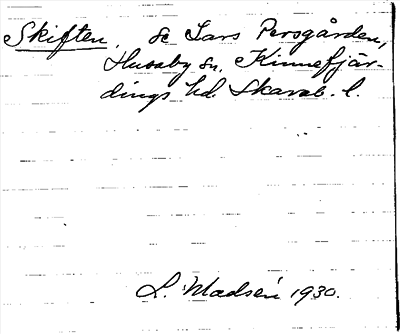 Skiften, se Lars Persgården,
Husaby sn, Kinnefjär-
dings hd. Skarab. l.
L. Madsén 1930.